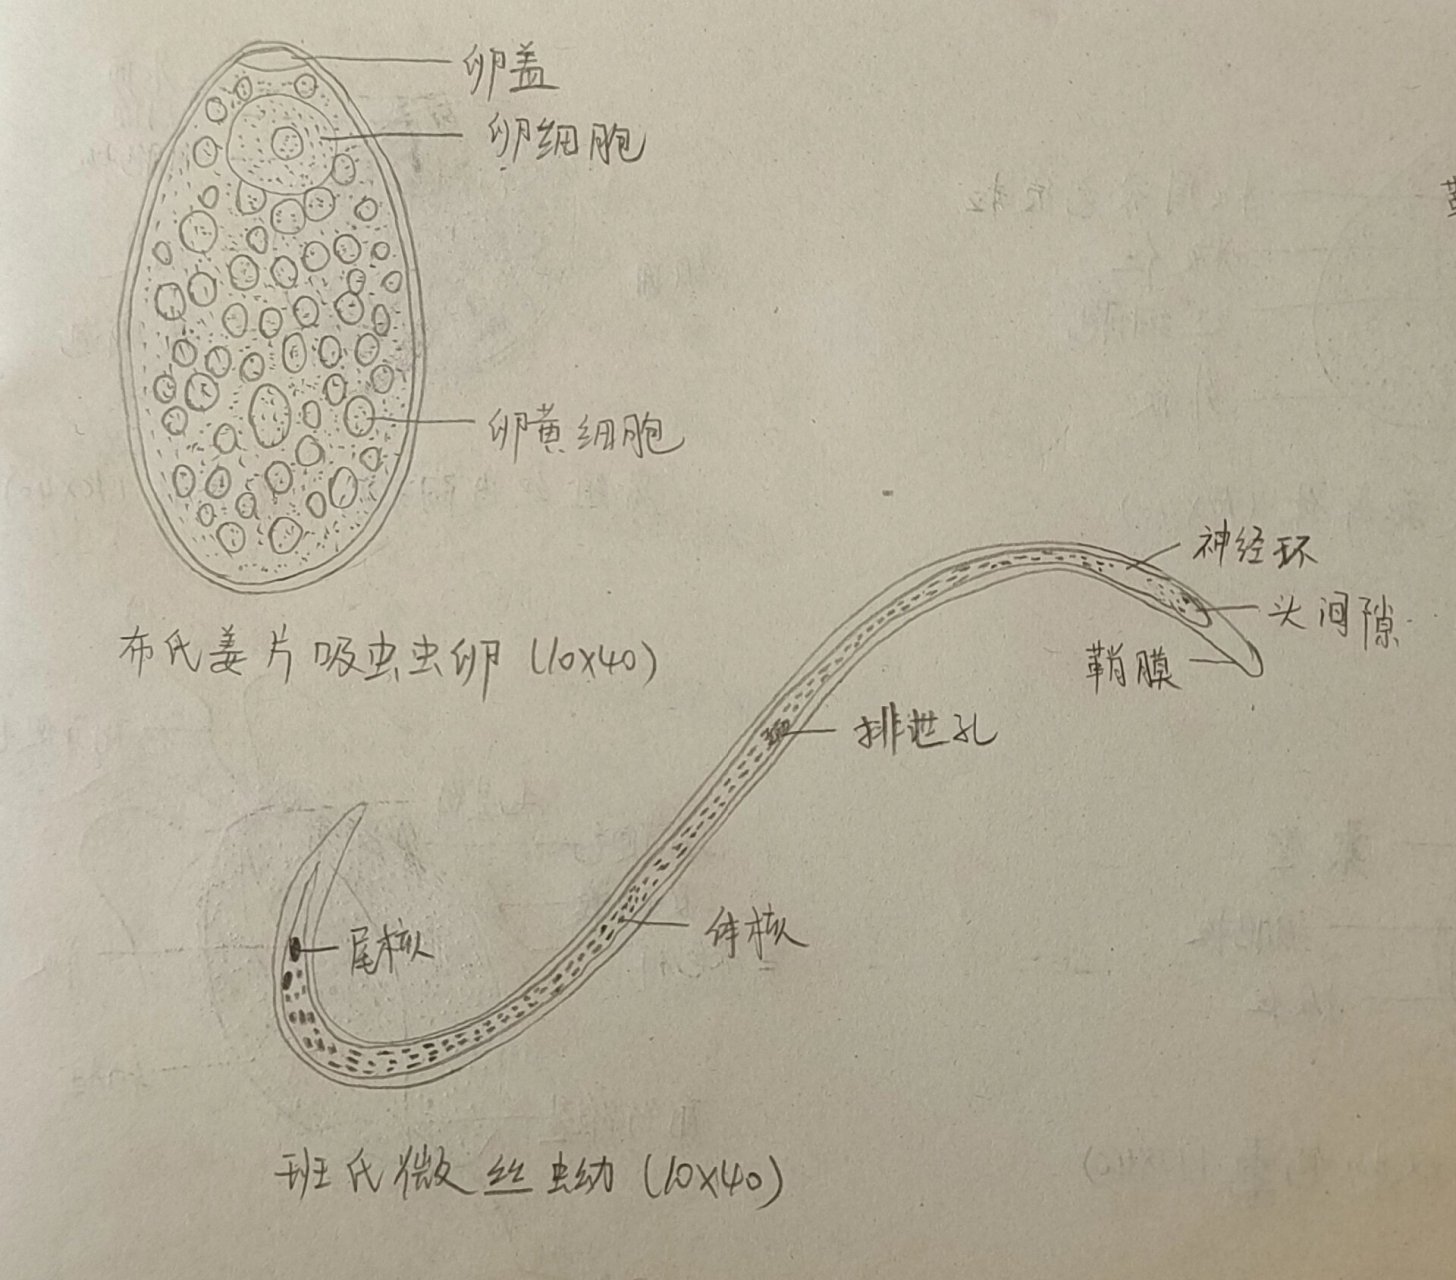 卵盖
卵细胞
卵黄细胞
布氏姜片吸虫虫卵 (10×40)
神经环
头间隙
鞘膜
排泄孔
体核
尾核
班氏微丝虫幼 (10×40)